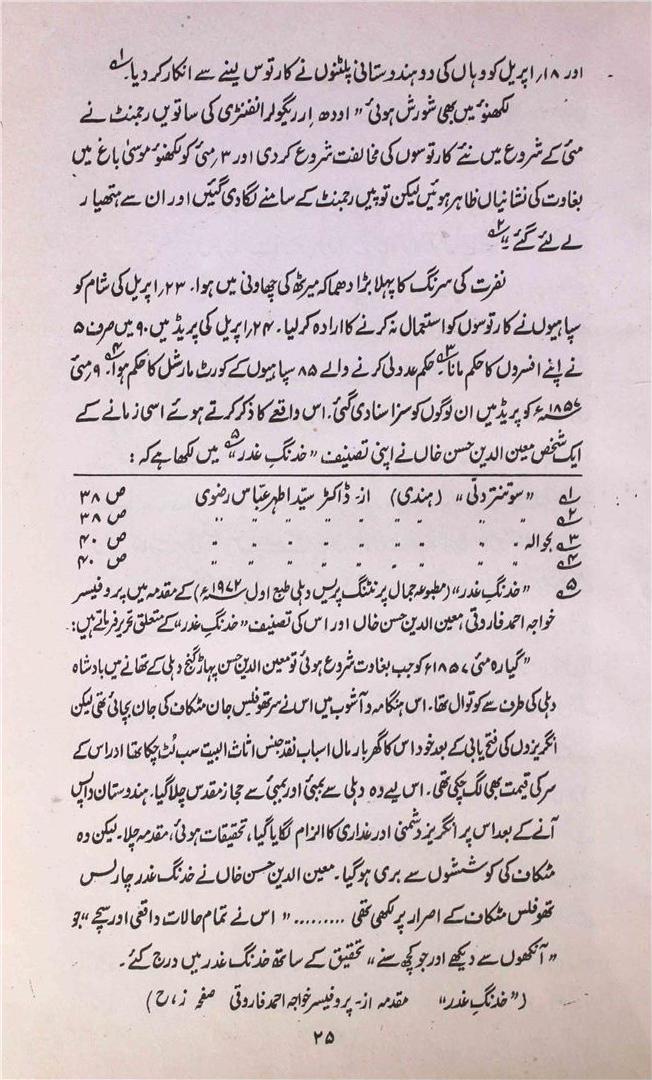 اور ۱۸؍ اپریل کو وہاں کی دو ہندوستانی پلٹنوں نے کارتوس لینے سے انکار کر دیا۔ ؎۱
لکھنؤ میں بھی شورش ہوئی ” اودھ اِرریگولر انفنٹری کی ساتویں رجمنٹ نے
مئی کے شروع میں نئے کارتوسوں کی مخالفت شروع کر دی اور ۳؍ مئی کو لکھنؤ موسیٰ باغ میں
بغاوت کی نشانیاں ظاہر ہوئیں لیکن توپیں رجمنٹ کے سامنے لگا دی گئیں اور ان سے ہتھیار
لے لئے گئے “ ؎۲
نفرت کی سرنگ کا پہلا بڑا دھماکہ میرٹھ کی چھاونی میں ہوا۔ ۲۳؍ اپریل کی شام کو
سپاہیوں نے کارتوسوں کو استعمال نہ کرنے کا ارادہ کرلیا۔ ۲۴؍ اپریل کی پریڈ میں ۹۰ میں صرف ۵
نے اپنے افسروں کا حکم مانا ؎۳ حکم عدولی کرنے والے ۸۵ سپاہیوں کے کورٹ مارشل کا حکم ہوا۔ ؎۴ ۹؍ مئی
۱۸۵۷ء کو پریڈ میں ان لوگوں کو سزا سنا دی گئی۔ اس واقعے کا ذکر کرتے ہوئے اسی زمانے کے
ایک شخص معین الدین حسن خاں نے اپنی تصنیف ” خدنگِ غدر “ ؎۵ میں لکھا ہے کہ :
؎۱ ” سوتنتر دلّی “ (ہندی) از۔ ڈاکٹر سیّد اطہر عبّاس رضوی ص ۳۸
؎۲ ” ” ” ” ” ” ” ” ص ۳۸
؎۳ بحوالہ ” ” ” ” ” ” ” ” ص ۴۰
؎۴ ” ” ” ” ” ” ” ” ص ۴۰
؎۵ ” خدنگِ غدر “ (مطبوعہ جمال پرنٹنگ پریس دہلی طبع اول ۱۹۷۲ء) کے مقدمہ میں پروفیسر
خواجہ احمد فاروقی معین الدین حسن خاں اور اس کی تصنیف ” خدنگِ غدر “ کے متعلق تحریر فرماتے ہیں :
” گیارہ مئی ۱۸۵۷ء کو جب بغاوت شروع ہوئی تو معین الدین حسن پہاڑ گنج دہلی کے تھانے میں بادشاہ
دہلی کی طرف سے کوتوال تھا۔ اس ہنگامہ و آشوب میں اس نے سر تھوفلس جان مٹکاف کی جان بچائی تھی لیکن
انگریزوں کی فتح یابی کے بعد خود اس کا گھر بار مال اسباب نقد جنس اثاث البیت سب لُٹ چکا تھا اور اس کے
سر کی قیمت بھی لگ چکی تھی۔ اس لیے وہ دہلی سے بمبئی اور بمبئی سے حجاز مقدس چلا گیا۔ ہندوستان واپس
آنے کے بعد اس پر انگریز دشمنی اور غداری کا الزام لگایا گیا، تحقیقات ہوئی، مقدمہ چلا۔ لیکن وہ
مٹکاف کی کوششوں سے بری ہوگیا۔ معین الدین حسن خاں نے خدنگ غدر چارلس
تھوفلس مٹکاف کے اصرار پر لکھی تھی ......... ” اس نے تمام حالات واقعی اور سچے “ جو
” آنکھوں سے دیکھے اور جو کچھ سنے “ تحقیق کے ساتھ خدنگ غدر میں درج کئے۔
( ” خدنگِ غدر “ مقدمہ از۔ پروفیسر خواجہ احمد فاروقی صفحہ ز، ح )
۲۵